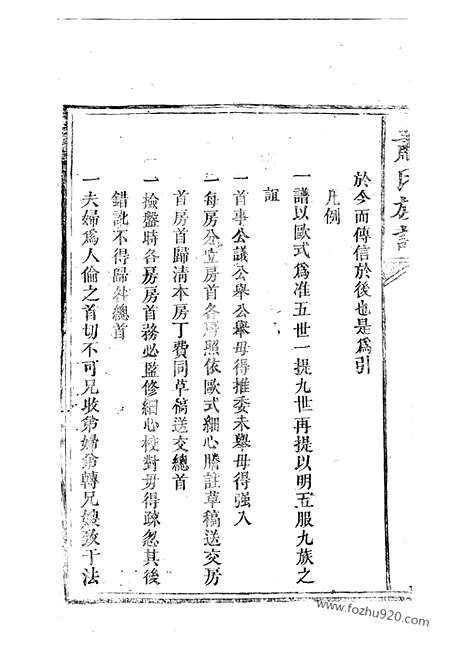 氏族譜
於今而傳信於後也是爲引
凡例
一譜以歐式爲准五世一提九世再提以明五服九族之
誼
一首事公議公舉公舉毋得推委未舉毋得强入
一每房公立房首各房照依歐式細心謄註草稿送交房
首房首歸清本房丁費同草稿送交總首
一撿盤時各房房首務必監修細心校對毋得疎忽其後
錯訛不得歸咎總首
一夫婦爲人倫之首切不可兄收弟婦弟轉兄嫂致于法
www.fozhu920.com